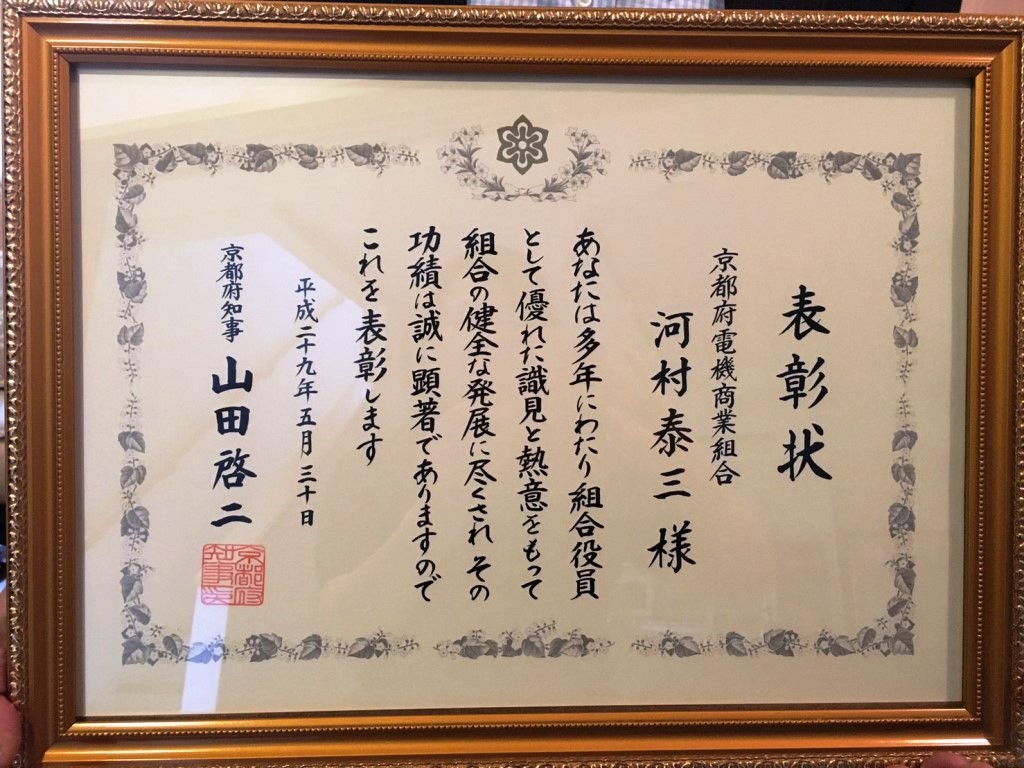 表彰状
京都府電機商業組合
河村泰三様
あなたは多年にわたり組合役員
として優れた識見と熱意をもって
組合の健全な発展に尽くされ その
功績は誠に顕著でありますので
これを表彰します
平成二十九年五月三十日
京都府知事 山田啓二
京都府
知事之印